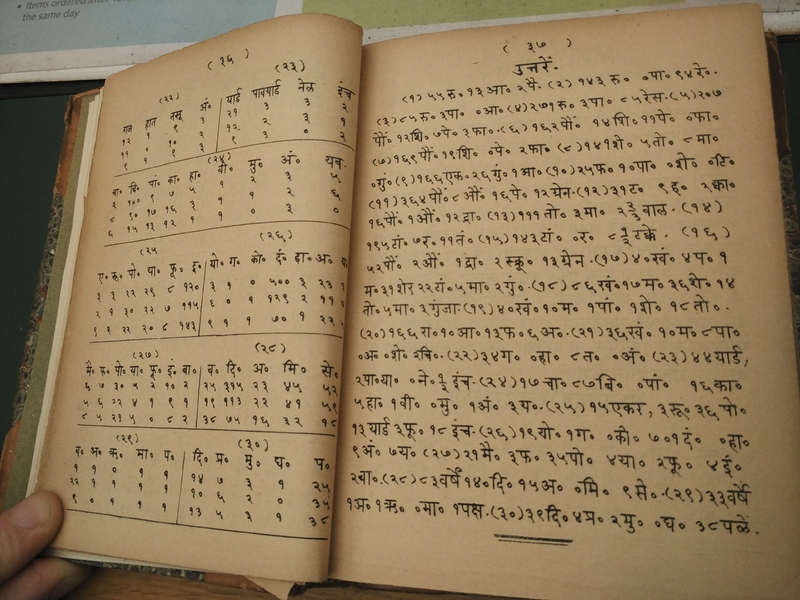 • Items ordered after
the same day
( ३६ )
(२२) (२३)
गज हात तसू अं० यार्ड पावयार्ड नेल इंच
१२ १ ९ ३ २१ ३ ३ २
११ ० १० २ १२ २ ३ १
९ १ १ ३ ९ ३ ० २
(२४)
चा० बि० पां० का० हा० वी० मु० अं० यव.
२ १०० ९ ७ ५ १ २ ३ ५
८ ९० १७ १६ ३ १ १ २ ६
६ १५ १३ १२ १ १ ० ३ ०
(२५ (२६)
ए० रू० पो० या० फू० इ० यो० ग० को० दं० हा० अ०
३ ३ २२ २९ ८ १२० ३ १ ० ५०० ३ २३
२ १ ३० २२ ७ ११५ ६ ० १ १२९ २ ११
९ १ २२ २० ८ १४३ ९ १ १ ७० १ २२
(२७) (२८)
मै० फ० पो० या० फू० इं० बा० व० दि० अ० मि० से०
६ ७ ३० ५ २ १० २ २५ ३१५ २३ ४५ ५२
५ ६ २२ ४ १ ९ १ १९ ११३ २२ ४१ ५९
८ ५ २१ ५ ० ८ २ ३८ ७५ १६ ३२ १८
(२९) (३०)
व० अ० ऋ० मा० प० दि० प्र० मु० घ० प०
१४ ७ ३ १ २५
१० ६ २ ० ३५
१३ ५ ३ १ ३८
( ३७ )
उत्तरें.
(१) ५५रु० १३आ० २पै. (२) १४३ रु० ०पा० ९४रे०
(३) ८५रु० ३पा० ०आ० (४) २७१रु० ३पा० ८५रेस. (५) २०७
पौं० १२शि० ७पे० ३फा०. (६) १६२पौं० १४शि० ११पे० ०फा०
(७) १६९पौं० १९शि० ०पे० २फा० (८) १४१शे० ५तो० ८मा०
०गुं० (९) १६६एक० २६गुं० १आ० (१०) २५फ० १०पा० ०शे० ०टि०
(११) ३६४पौं० ८औं० १६पे० १२ग्रेन. (१२) ३१ट० ९ह० २क्वा०
१६पौं० १औं० १२ड्रा० (१३) १११तो० ३मा० २ वाल. (१४)
१९५टां० ७र० ११तं० (१५) १४३टां० ०र० ८ टक्के. (१६)
५२पौं० २औं० १ड्रा० २स्क्रू० १३ग्रेन. (१७) ४०खं० ४प० १
म० ३१शेर २२टां० ५मा० २गुं०. (१८) ८६खं० १७म० ३६शे० १४
तो० ५मा० ३गुंजा. (१९) ४०खं० १०म० १पा० १शे० १८तो०.
(२०) १६६ग० १०आ० १३फ० ६अ०. (२१) ३६खं० १०म० ८पा०
०अ० ०शे० २चि०. (२२) ३४ग० ०हा० ८त० ०अं० (२३) ४४यार्ड,
२पा०या० ०ने० इंच. (२४) १७चा० ८७बि० ०पां० १६का०
५हा० १वी० ०मु० १अं० ३य०. (२५) १५एकर, ३रू० ३६पो०
१३यार्ड ३फू० १८इंच. (२६) १९यो० १ग० ०को० ७०१दं० ०हा०
९अं० ७य० (२७) २१मै० ३फ० ३५पो० ४या० २फू० ४इं०
२बा०. (२८) ८३वर्षें १४०दि० १५अ० ०मि० ९से०. (२९) ३३वर्षें
१अ० १ऋ० ०मा० १पक्ष. (३०) ३९दि० ४प्र० २मु० ०घ० ३८पळें.